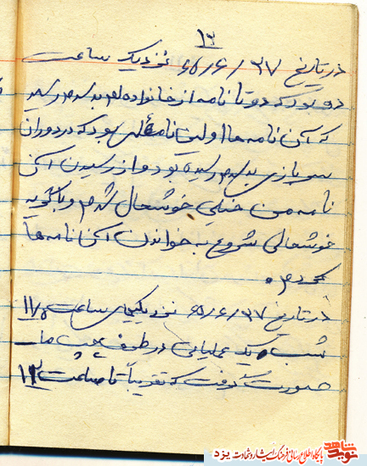 ۱۳
در تاریخ ۶۵/۶/۲۷ نزدیک ساعت
دو بود که دو تا نامه از خانواده‌ام بدستم رسید
که آن نامه‌ها اولین نامه‌هایی بود که در دوران
سربازی بدستم رسیده بود و از رسیدن آن
نامه من خیلی خوشحال شدم و با
خوشحالی شروع به خواندن آن نامه‌ها
کردم.
در تاریخ ۶۵/۶/۲۷ نزدیکیهای ساعت ۱۱/۵
شب یک عملیاتی در طرف چپ ما
صورت گرفت که تقریباً تا ساعت ۱۲
نوید شاهد
پایگاه اطلاع رسانی فرهنگ ایثار و شهادت یزد